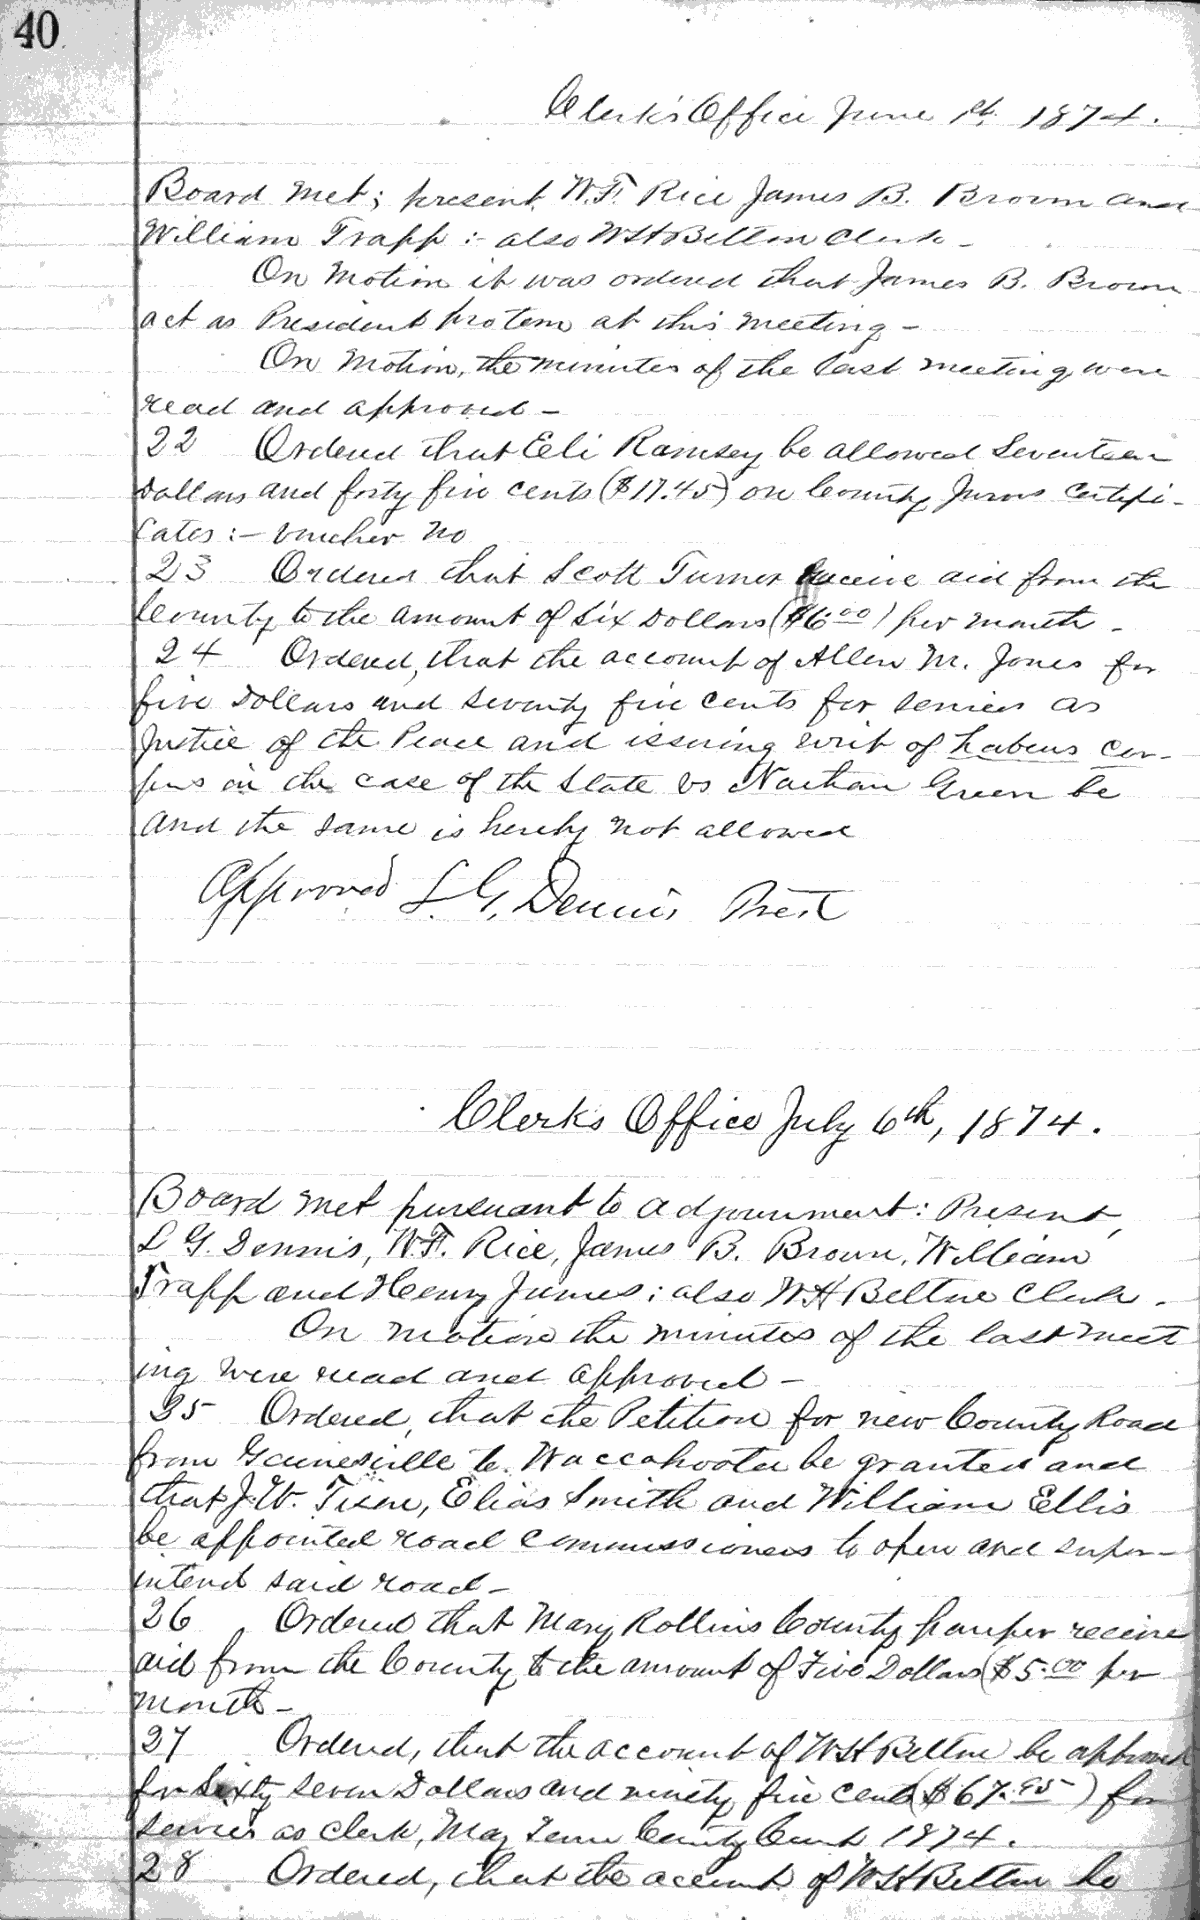 40
Clerk's Office June 1st. 1874.
Board met; present W.F. Rice James B. Brown and
William Trapp :- also W H Belton Clerk -
On Motion it was ordered that James B. Brown
act as President protem at this meeting -
On Motion, the minutes of the last meeting were
read and approved -
22 Ordered that Eli Ramsey be allowed Seventeen
Dollars and forty five cents ($17.45) on County Jurors Certifi-
cates :- Voucher No
23 Ordered that Scott Turner receive aid from the
County to the amount of Six Dollars ($6.00) per month -
24 Ordered, that the account of Allen M. Jones for
five Dollars and seventy five cents for services as
Justice of the Peace and issuing writ of habeus cor-
pus in the case of the State vs Nathan Green be
and the same is hereby not allowed
Approved L. G. Dennis Prest
Clerks Office July 6th, 1874.
Board met pursuant to adjournment: Present,
L G. Dennis, W.F. Rice, James B. Brown, William
Trapp and Henry James; also W H Belton Clerk -
On motion the minutes of the last meet
ing were read and approved -
25 Ordered, that the Petition for new County Road
from Gainesville to Waccahoota be granted and
that J. W. Tison, Elias Smith and William Ellis
be appointed road commissioners to open and super-
intend said road -
26 Ordered that Mary Rollins County pauper receive
aid from the County to the amount of Five Dollars ($5.00 per
month -
27 Ordered, that the account of W H Belton be approved
for Sixty seven Dollars and ninety five cents ($67.95) for
services as clerk, May Term County Court 1874.
28 Ordered, that the account of W H Belton be